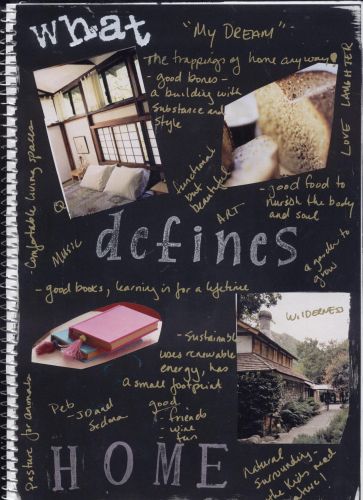 what
"MY DREAM" -
The trappings of home anyway!
- good bones -
a building with
substance and
style
LOVE LAUGHTER
- Comfortable living spaces
functional
but
beautiful
ART
- good food to
nurish the body
and soul
MUSIC
defines
a garden to
grow
- good books, learning in for a lifetime
WILDERNESS
- Sustainable
uses renewable
energy, has
a small footprint
Pasture for animals
Peb
- JD and
Sedona
good
- friends
- wine
- fun
HOME
Natural
Surroundings -
the kids need